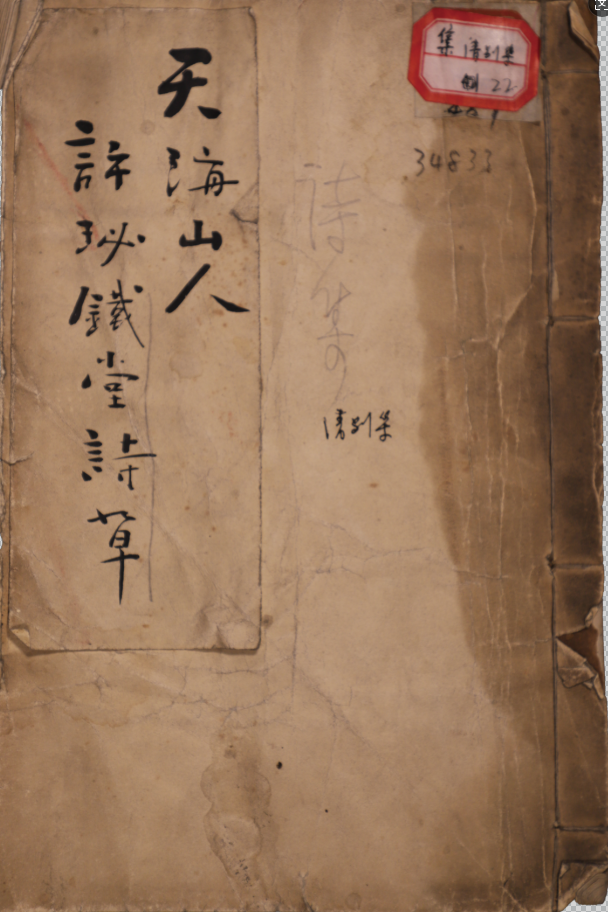 集 清别集
22
34833
詩集
清别集
天海山人
許珌鐵堂詩草